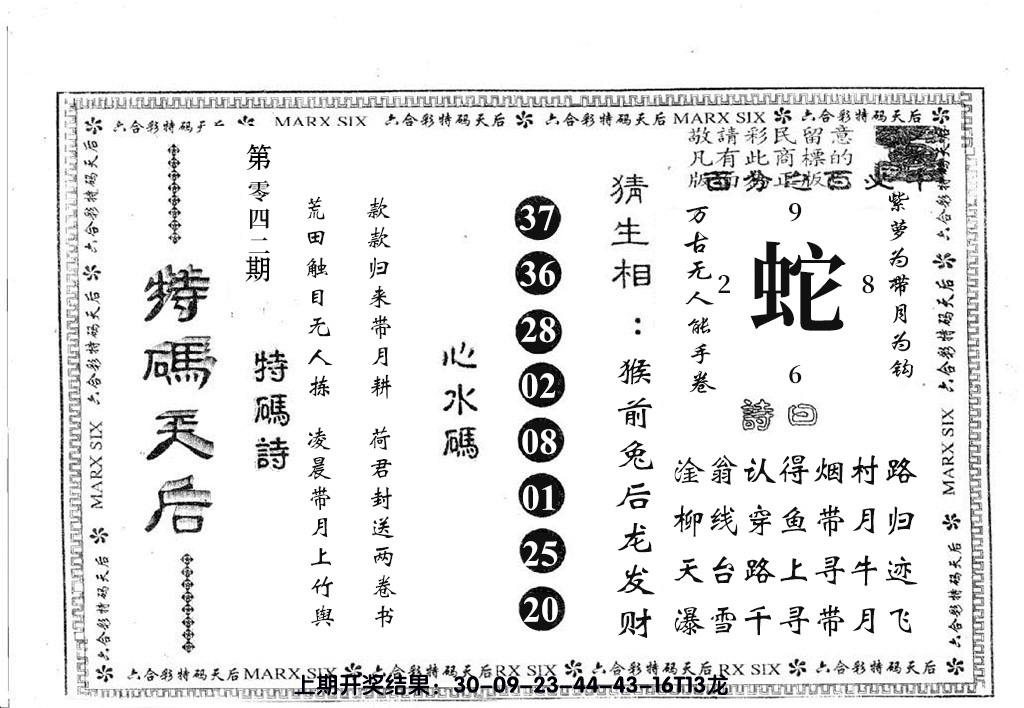 六合彩特码天 MARX SIX 六合彩特码天后 六合彩特码天后 MARX SIX 六合彩特码天后
敬請彩民留意
凡有此商標的
版面为正版
第零四二期
特碼天后
特碼詩
荒田触目无人拣 凌晨带月上竹舆
款款归来带月耕 荷君封送两卷书
心水碼
37
36
28
02
08
01
25
20
猜生相：猴前兔后龙发财
万古无人能手卷
9
2 蛇 8
6
紫萝为带月为钩
詩曰
淦翁认得烟村路
柳线穿鱼带月归
天台路上寻牛迹
瀑雪千寻带月飞
六合彩特码天后 MARX SIX 六合彩特码天后
六合彩特码天后 MARX SIX 六合彩特码天后
六合彩特码天后MARX SIX 六合彩特码天后RX SIX 六合彩特码天后RX SIX 六合彩特码天后
上期开奖结果：30-09-23-44-43-16T13龙